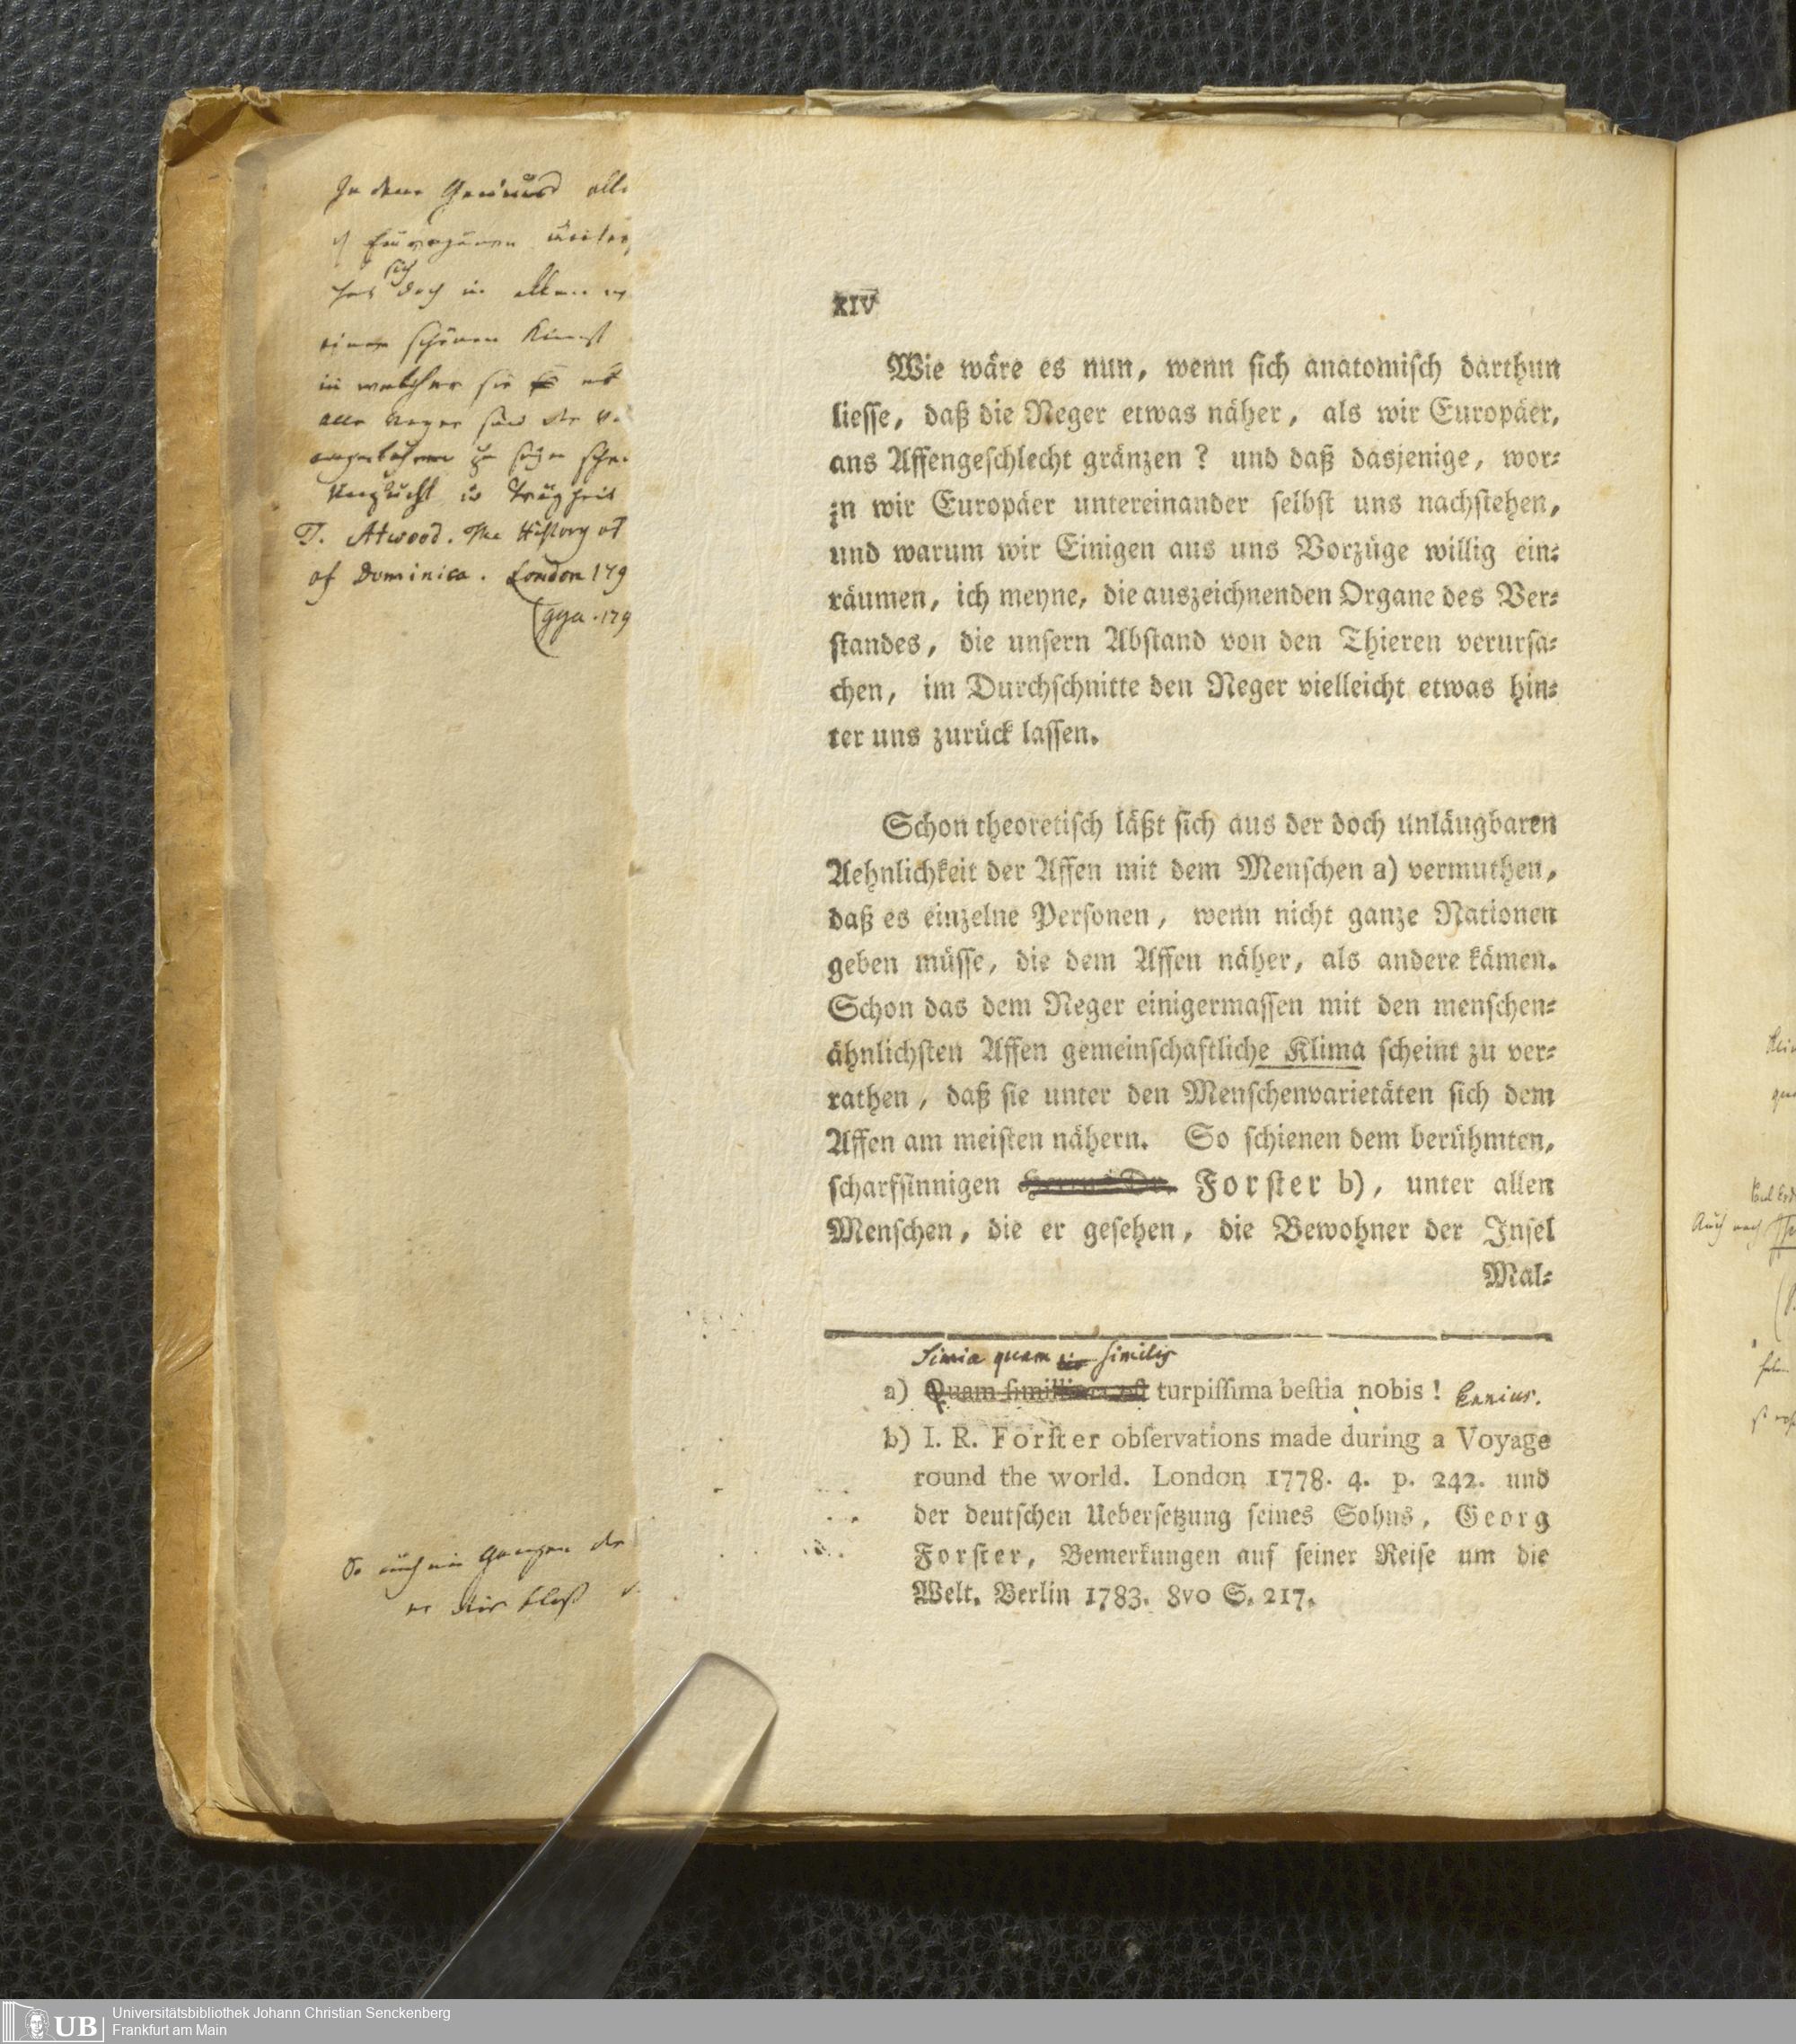 In dem
sich
doch in allen
einer schönen Kunst
in welcher sie
alle Neger sind
Unzucht u Trägheit
T. Atwood. The History of
of Dominica. London 179
(gga. 179
So auch im Ganzen
er bloß
XIV
Wie wäre es nun, wenn sich anatomisch darthun
liesse, daß die Neger etwas näher, als wir Europäer,
ans Affengeschlecht gränzen? und daß dasjenige, wor-
zn wir Europäer untereinander selbst uns nachstehen,
und warum wir Einigen aus uns Vorzüge willig ein-
räumen, ich meyne, die auszeichnenden Organe des Ver-
standes, die unsern Abstand von den Thieren verursa-
chen, im Durchschnitte den Neger vielleicht etwas hin-
ter uns zurück lassen.
Schon theoretisch läßt sich aus der doch unläugbaren
Aehnlichkeit der Affen mit dem Menschen a) vermuthen,
daß es einzelne Personen, wenn nicht ganze Nationen
geben müsse, die dem Affen näher, als andere kämen.
Schon das dem Neger einigermassen mit den menschen-
ähnlichsten Affen gemeinschaftliche Klima scheint zu ver-
rathen, daß sie unter den Menschenvarietäten sich dem
Affen am meisten nähern. So schienen dem berühmten,
scharfsinnigen Herrn Dr. Forster b), unter allen
Menschen, die er gesehen, die Bewohner der Insel
Mal-
Simia quam similis
a) Quam simillima est turpissima bestia nobis! Ennius.
b) I. R. Forster observations made during a Voyage
round the world. London 1778. 4. p. 242. und
der deutschen Uebersetzung seines Sohns, Georg
Forster, Bemerkungen auf seiner Reise um die
Welt. Berlin 1783. 8vo S. 217.
Auch nach
UB
Universitätsbibliothek Johann Christian Senckenberg
Frankfurt am Main